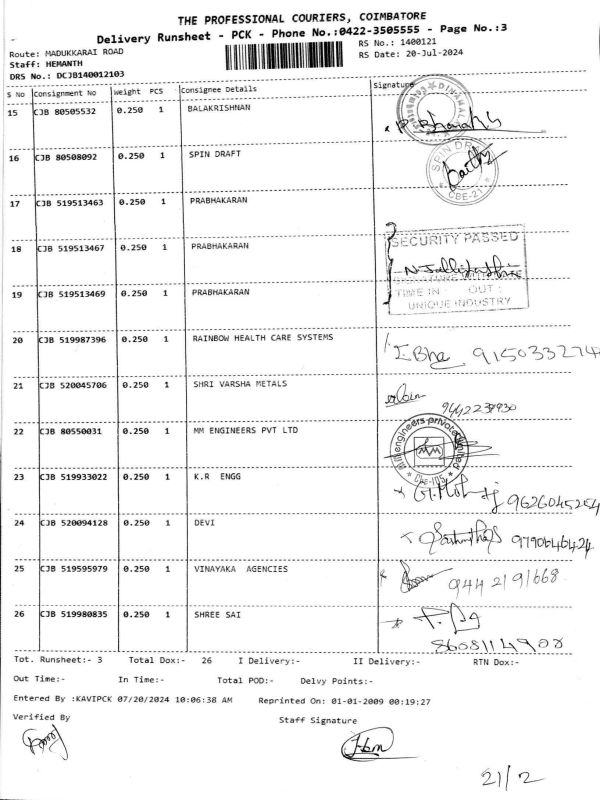 THE PROFESSIONAL COURIERS, COIMBATORE
Delivery Runsheet - PCK - Phone No.:0422-3505555 - Page No.:3
Route: MADUKKARAI ROAD
RS No.: 1400121
Staff: HEMANTH
RS Date: 20-Jul-2024
DRS No.: DCJB140012103
S No Consignment No Weight PCS Consignee Details Signature
15 CJB 80505532 0.250 1 BALAKRISHNAN
16 CJB 80508092 0.250 1 SPIN DRAFT
CBE-21
17 CJB 519513463 0.250 1 PRABHAKARAN
SECURITY PASSED
18 CJB 519513467 0.250 1 PRABHAKARAN
19 CJB 519513469 0.250 1 PRABHAKARAN
TIME IN : OUT :
UNIQUE INDUSTRY
20 CJB 519987396 0.250 1 RAINBOW HEALTH CARE SYSTEMS
915033274
21 CJB 520045706 0.250 1 SHRI VARSHA METALS
22 CJB 80550031 0.250 1 MM ENGINEERS PVT LTD
engineers private limited
23 CJB 519933022 0.250 1 K.R ENGG
9626045254
24 CJB 520094128 0.250 1 DEVI
9790646424
25 CJB 519595979 0.250 1 VINAYAKA AGENCIES
9442191668
26 CJB 519980835 0.250 1 SHREE SAI
8608114908
Tot. Runsheet:- 3 Total Dox:- 26 I Delivery:- II Delivery:- RTN Dox:-
Out Time:- In Time:- Total POD:- Delvy Points:-
Entered By :KAVIPCK 07/20/2024 10:06:38 AM Reprinted On: 01-01-2009 00:19:27
Verified By Staff Signature
21/2